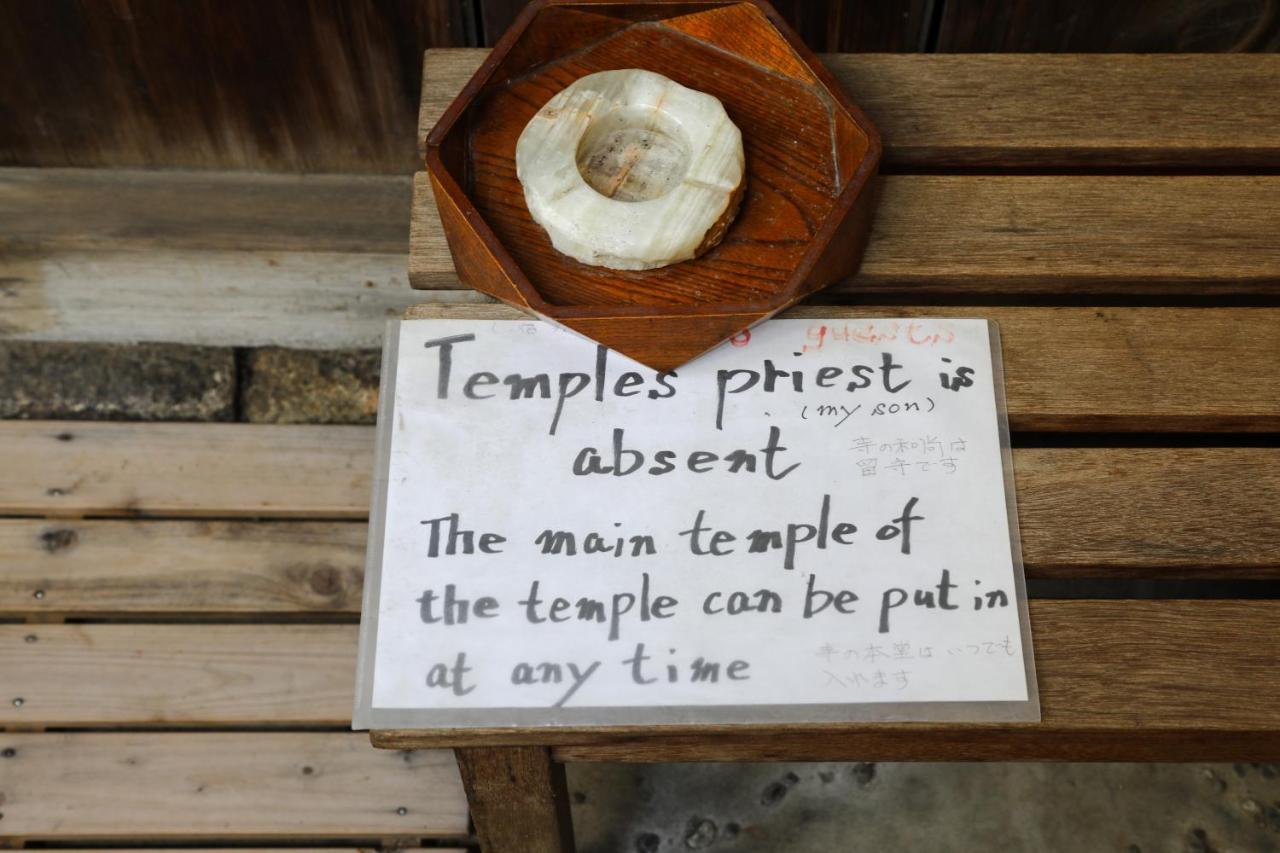 guests
Temples priest is
(my son)
absent
寺の和尚は
留守です
The main temple of
the temple can be put in
at any time
寺の本堂は いつでも
入れます